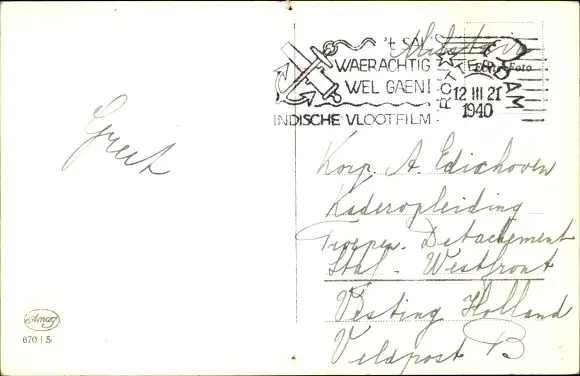 't SAL
WAERACHTIG
WEL GAEN!
INDISCHE VLOOTFILM
Militair
ROTTERDAM
12 III 21
1940
Echte Foto
Greet
Korp. A. Edixhoven
Kaderopleiding
Troepen. Detachement
Staf - Westfront
Vesting Holland
Veldpost B
Amag
670 | 5